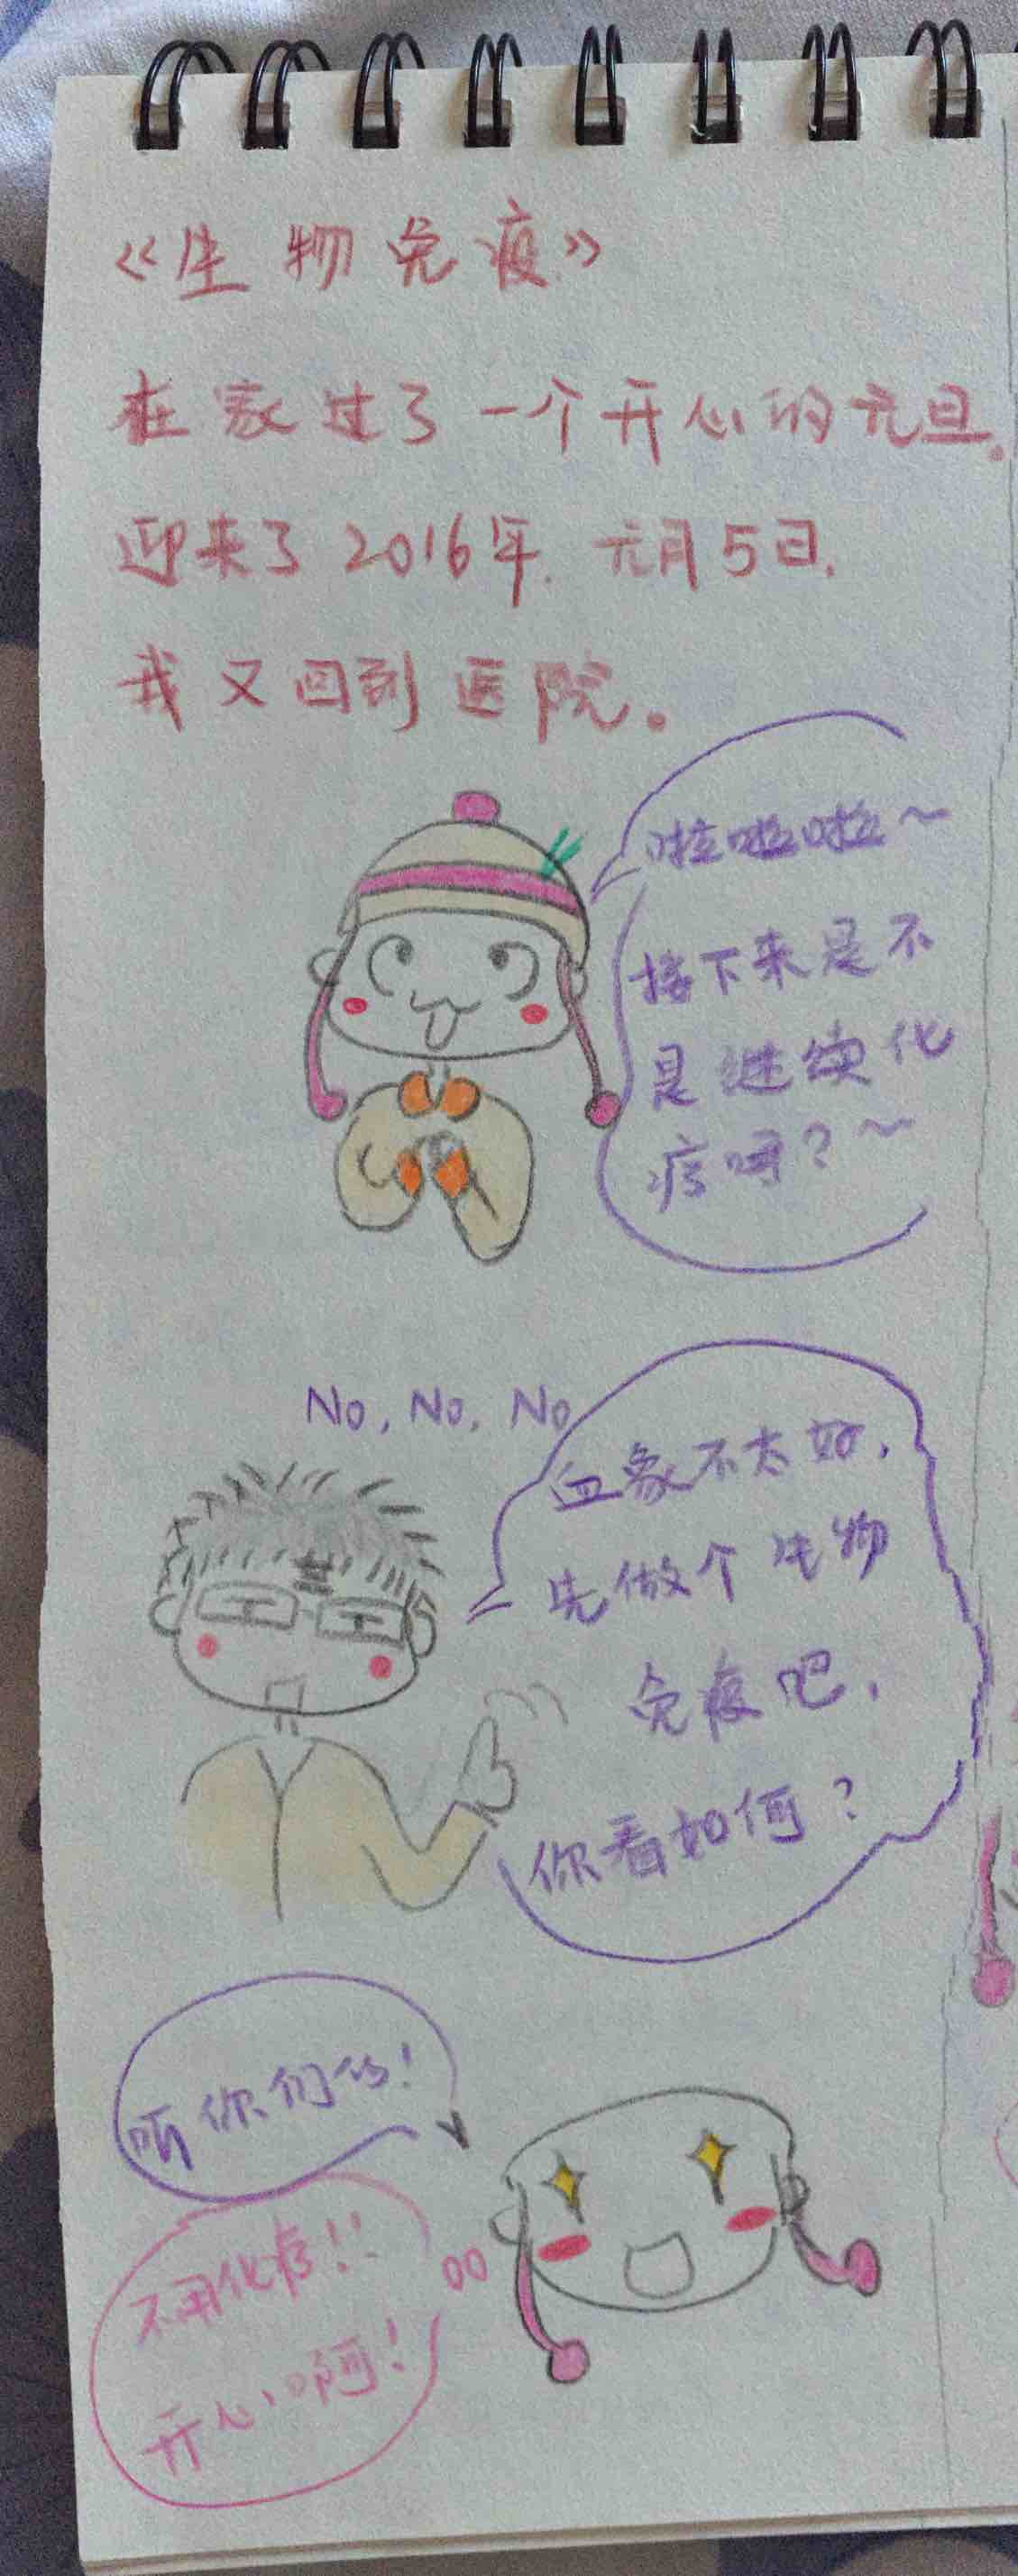 《生物免疫》
在家过了一个开心的元旦。
迎来了2016年.元月5日,
我又回到医院。
啦啦啦~
接下来是不
是继续化
疗呀?~
No, No, No
血象不太好,
先做个生物
免疫吧,
你看如何?
听你们的!
不用化疗!!
开心啊!